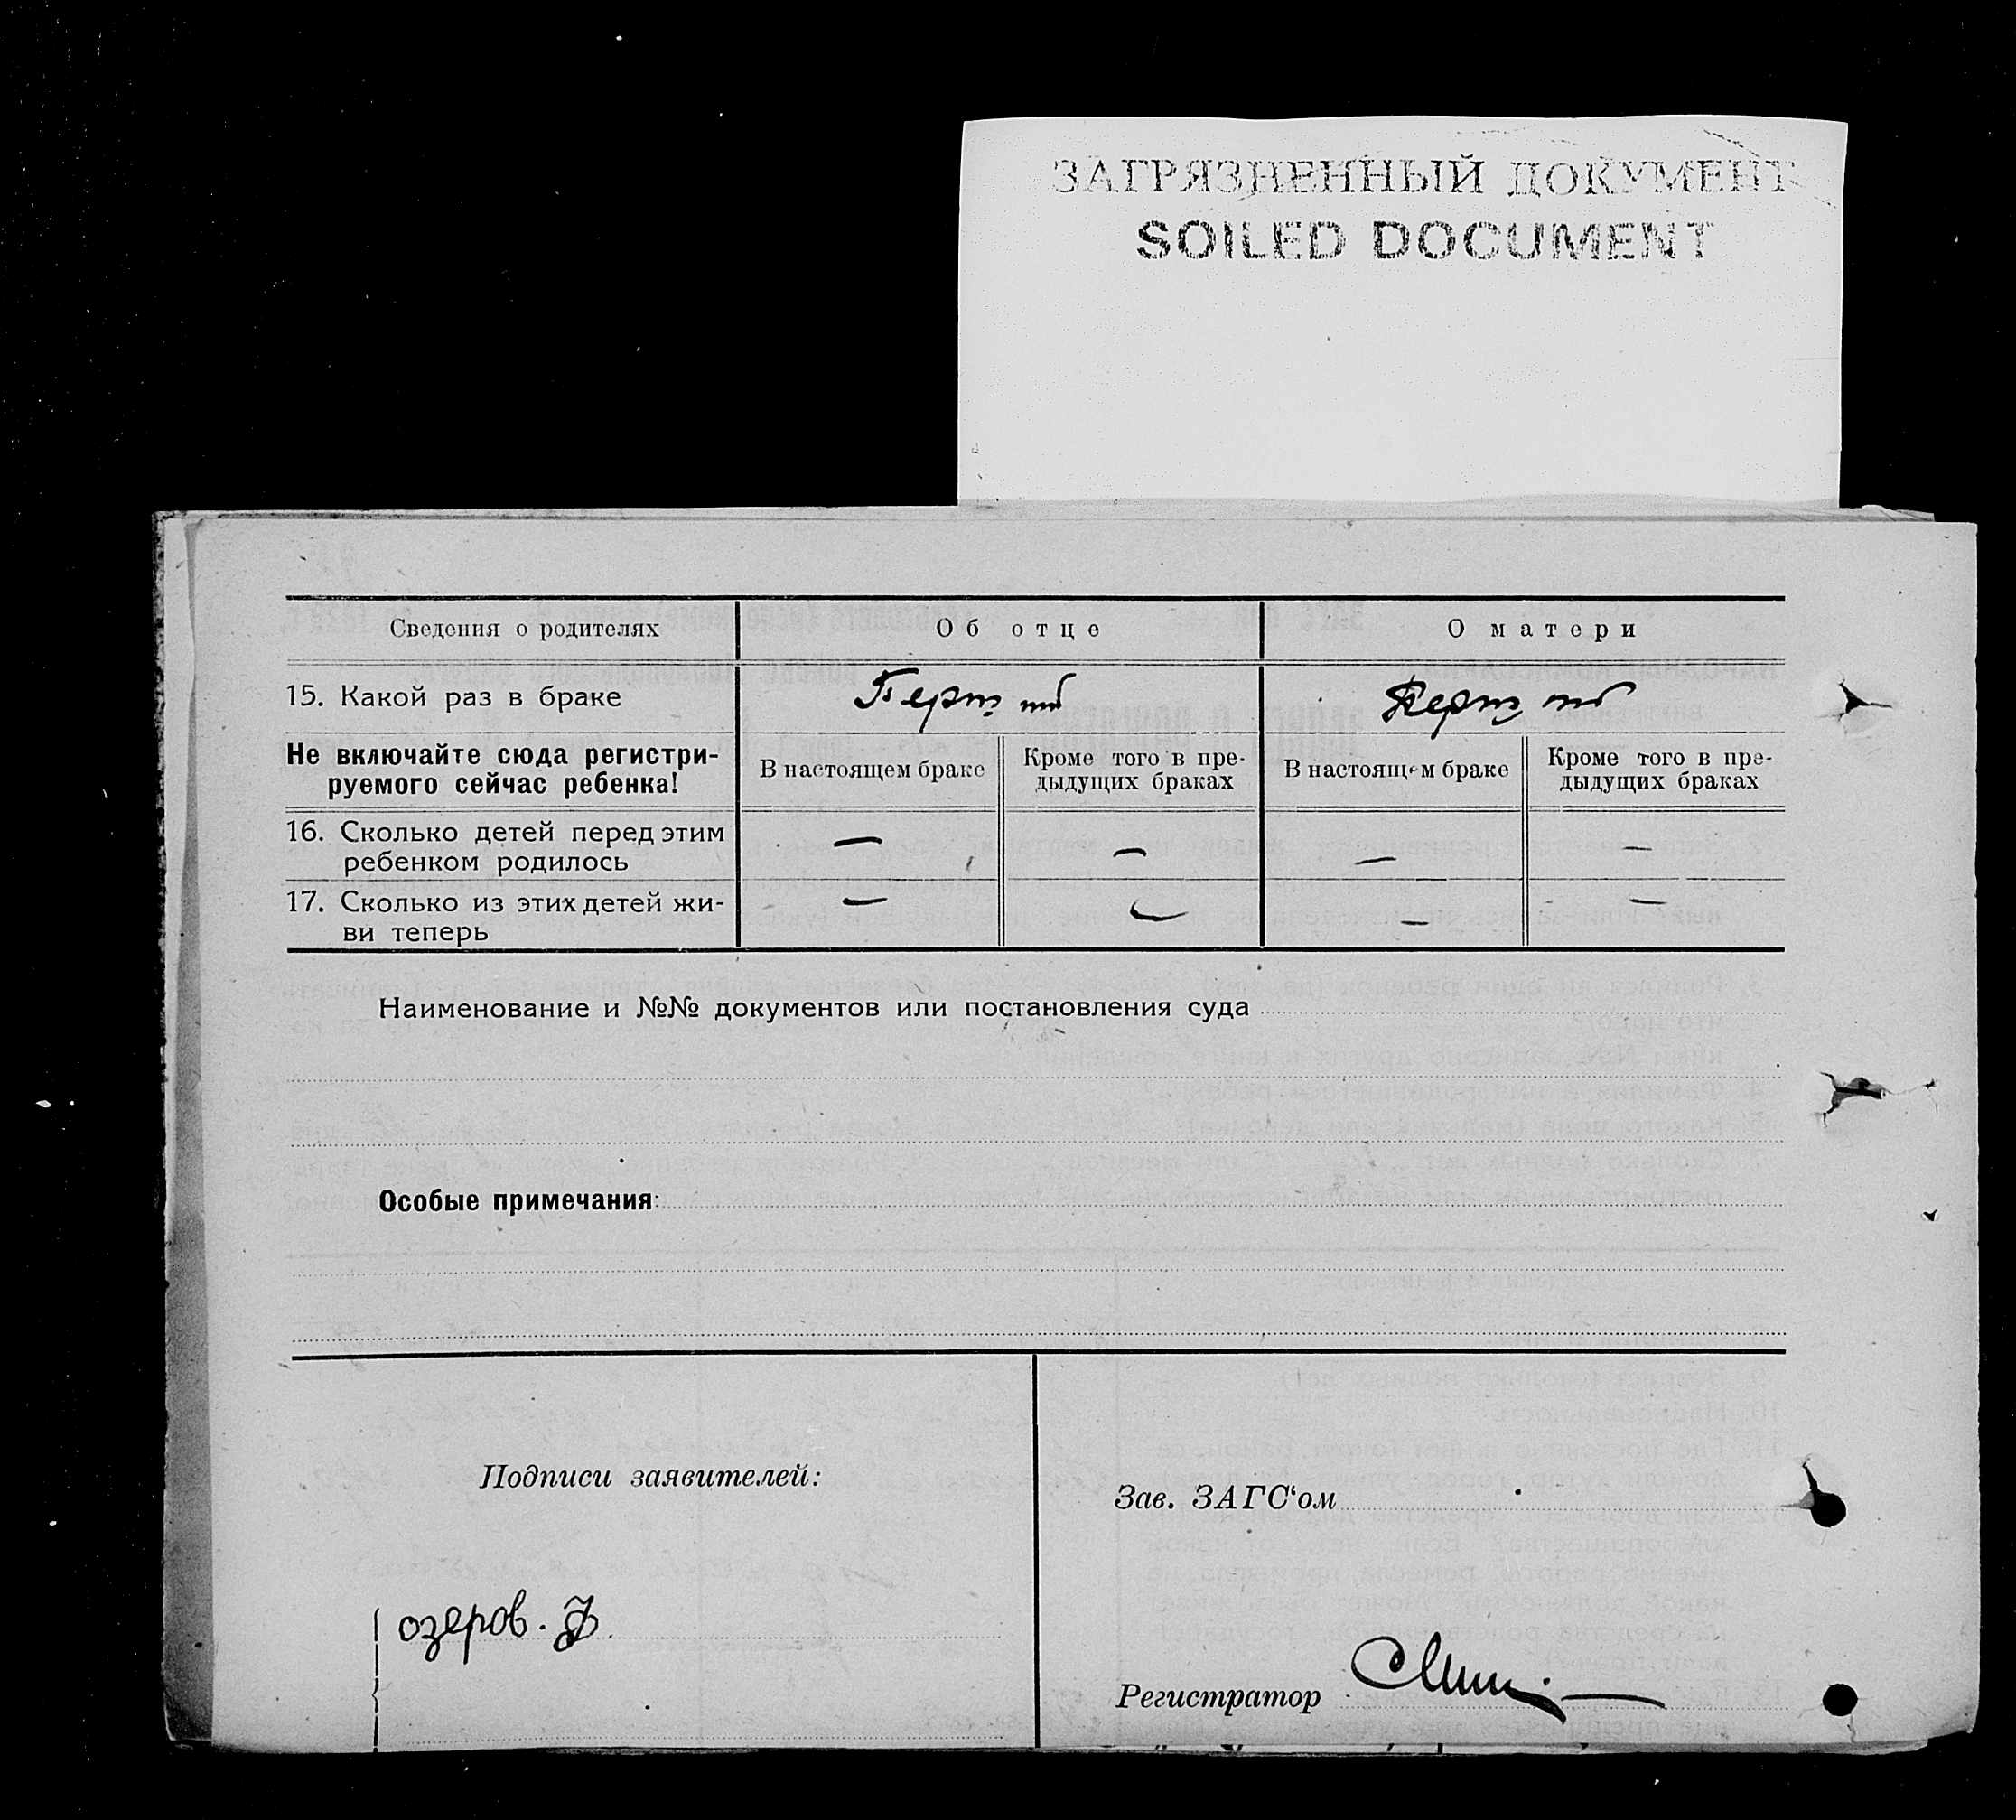 ЗАГРЯЗНЕННЫЙ ДОКУМЕНТ
SOILED DOCUMENT
Сведения о родителях
Об отце
О матери
15. Какой раз в браке
Не включайте сюда регистри-
руемого сейчас ребенка!
В настоящем браке
Кроме того в пре-
дыдущих браках
В настоящем браке
Кроме того в пре-
дыдущих браках
16. Сколько детей перед этим
ребенком родилось
— — — —
17. Сколько из этих детей жи-
ви теперь
— — — —
Наименование и №№ документов или постановления суда
Особые примечания:
Подписи заявителей:
озеров. Ф.
Зав. ЗАГС‘ом
Регистратор